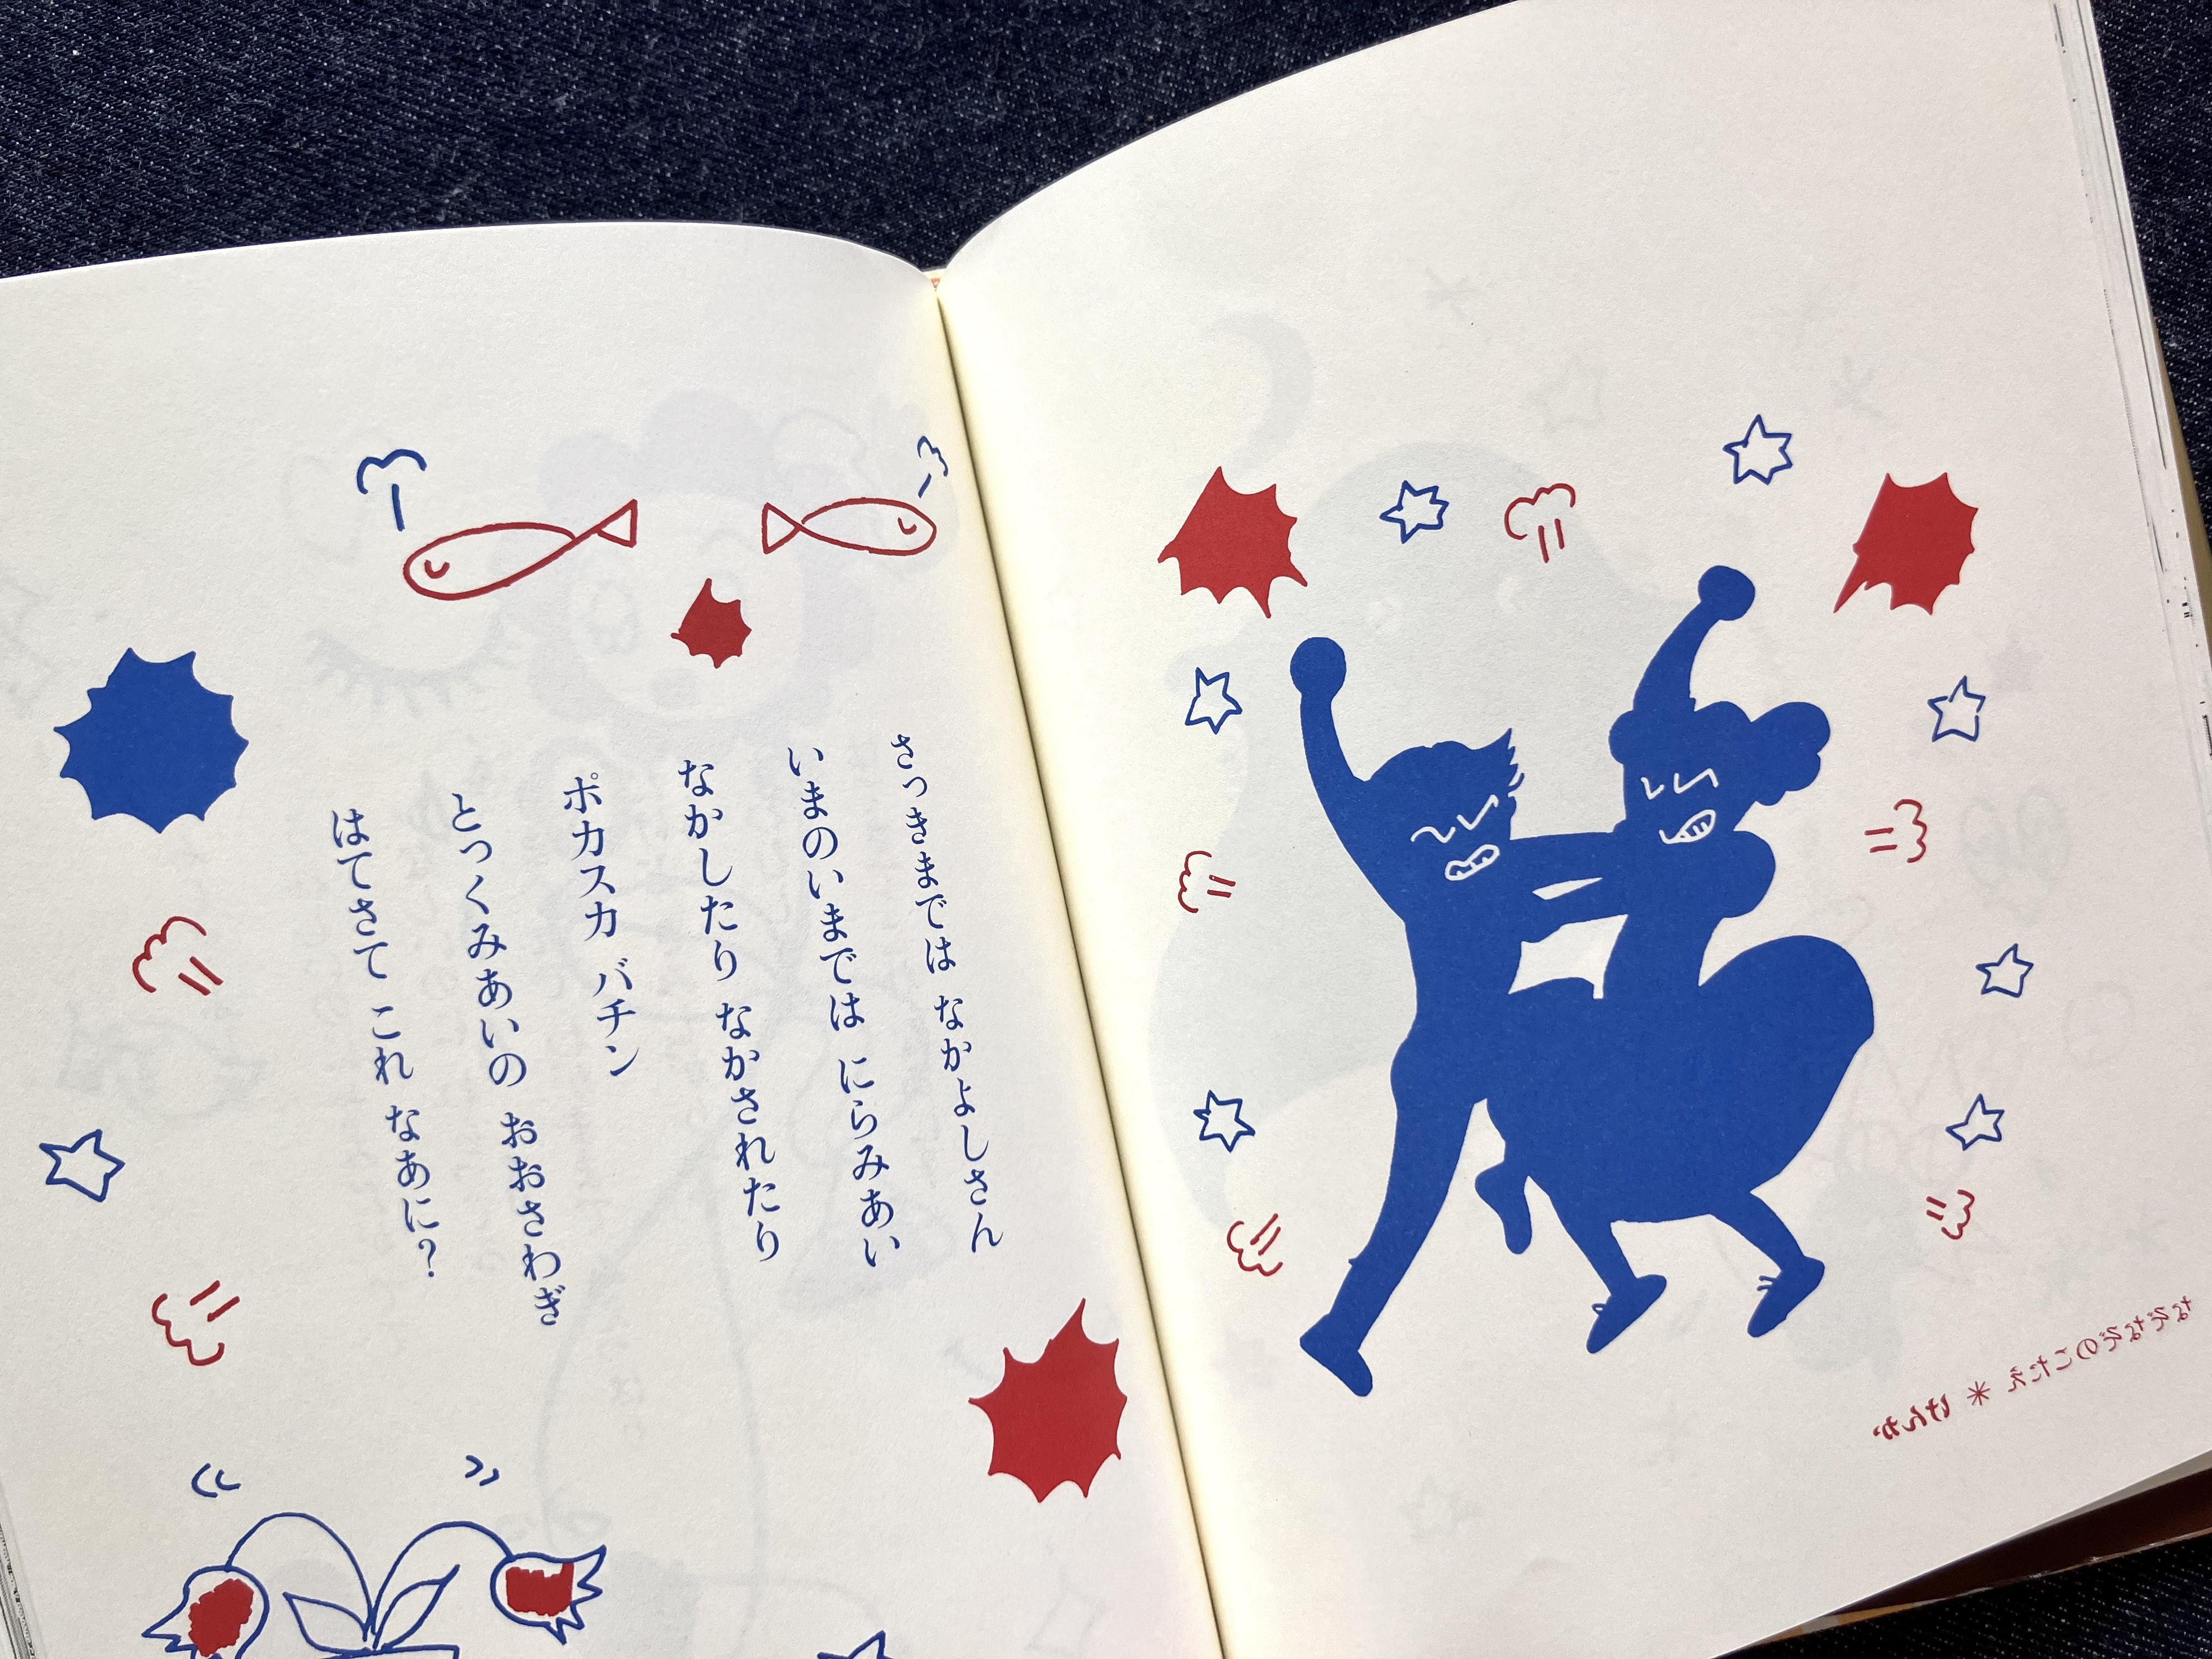 さっきまでは なかよしさん
いまのいままでは にらみあい
なかしたり なかされたり
ポカスカ バチン
とっくみあいの おおさわぎ
はてさて これ なあに?
なぞなぞのこたえ * けんか